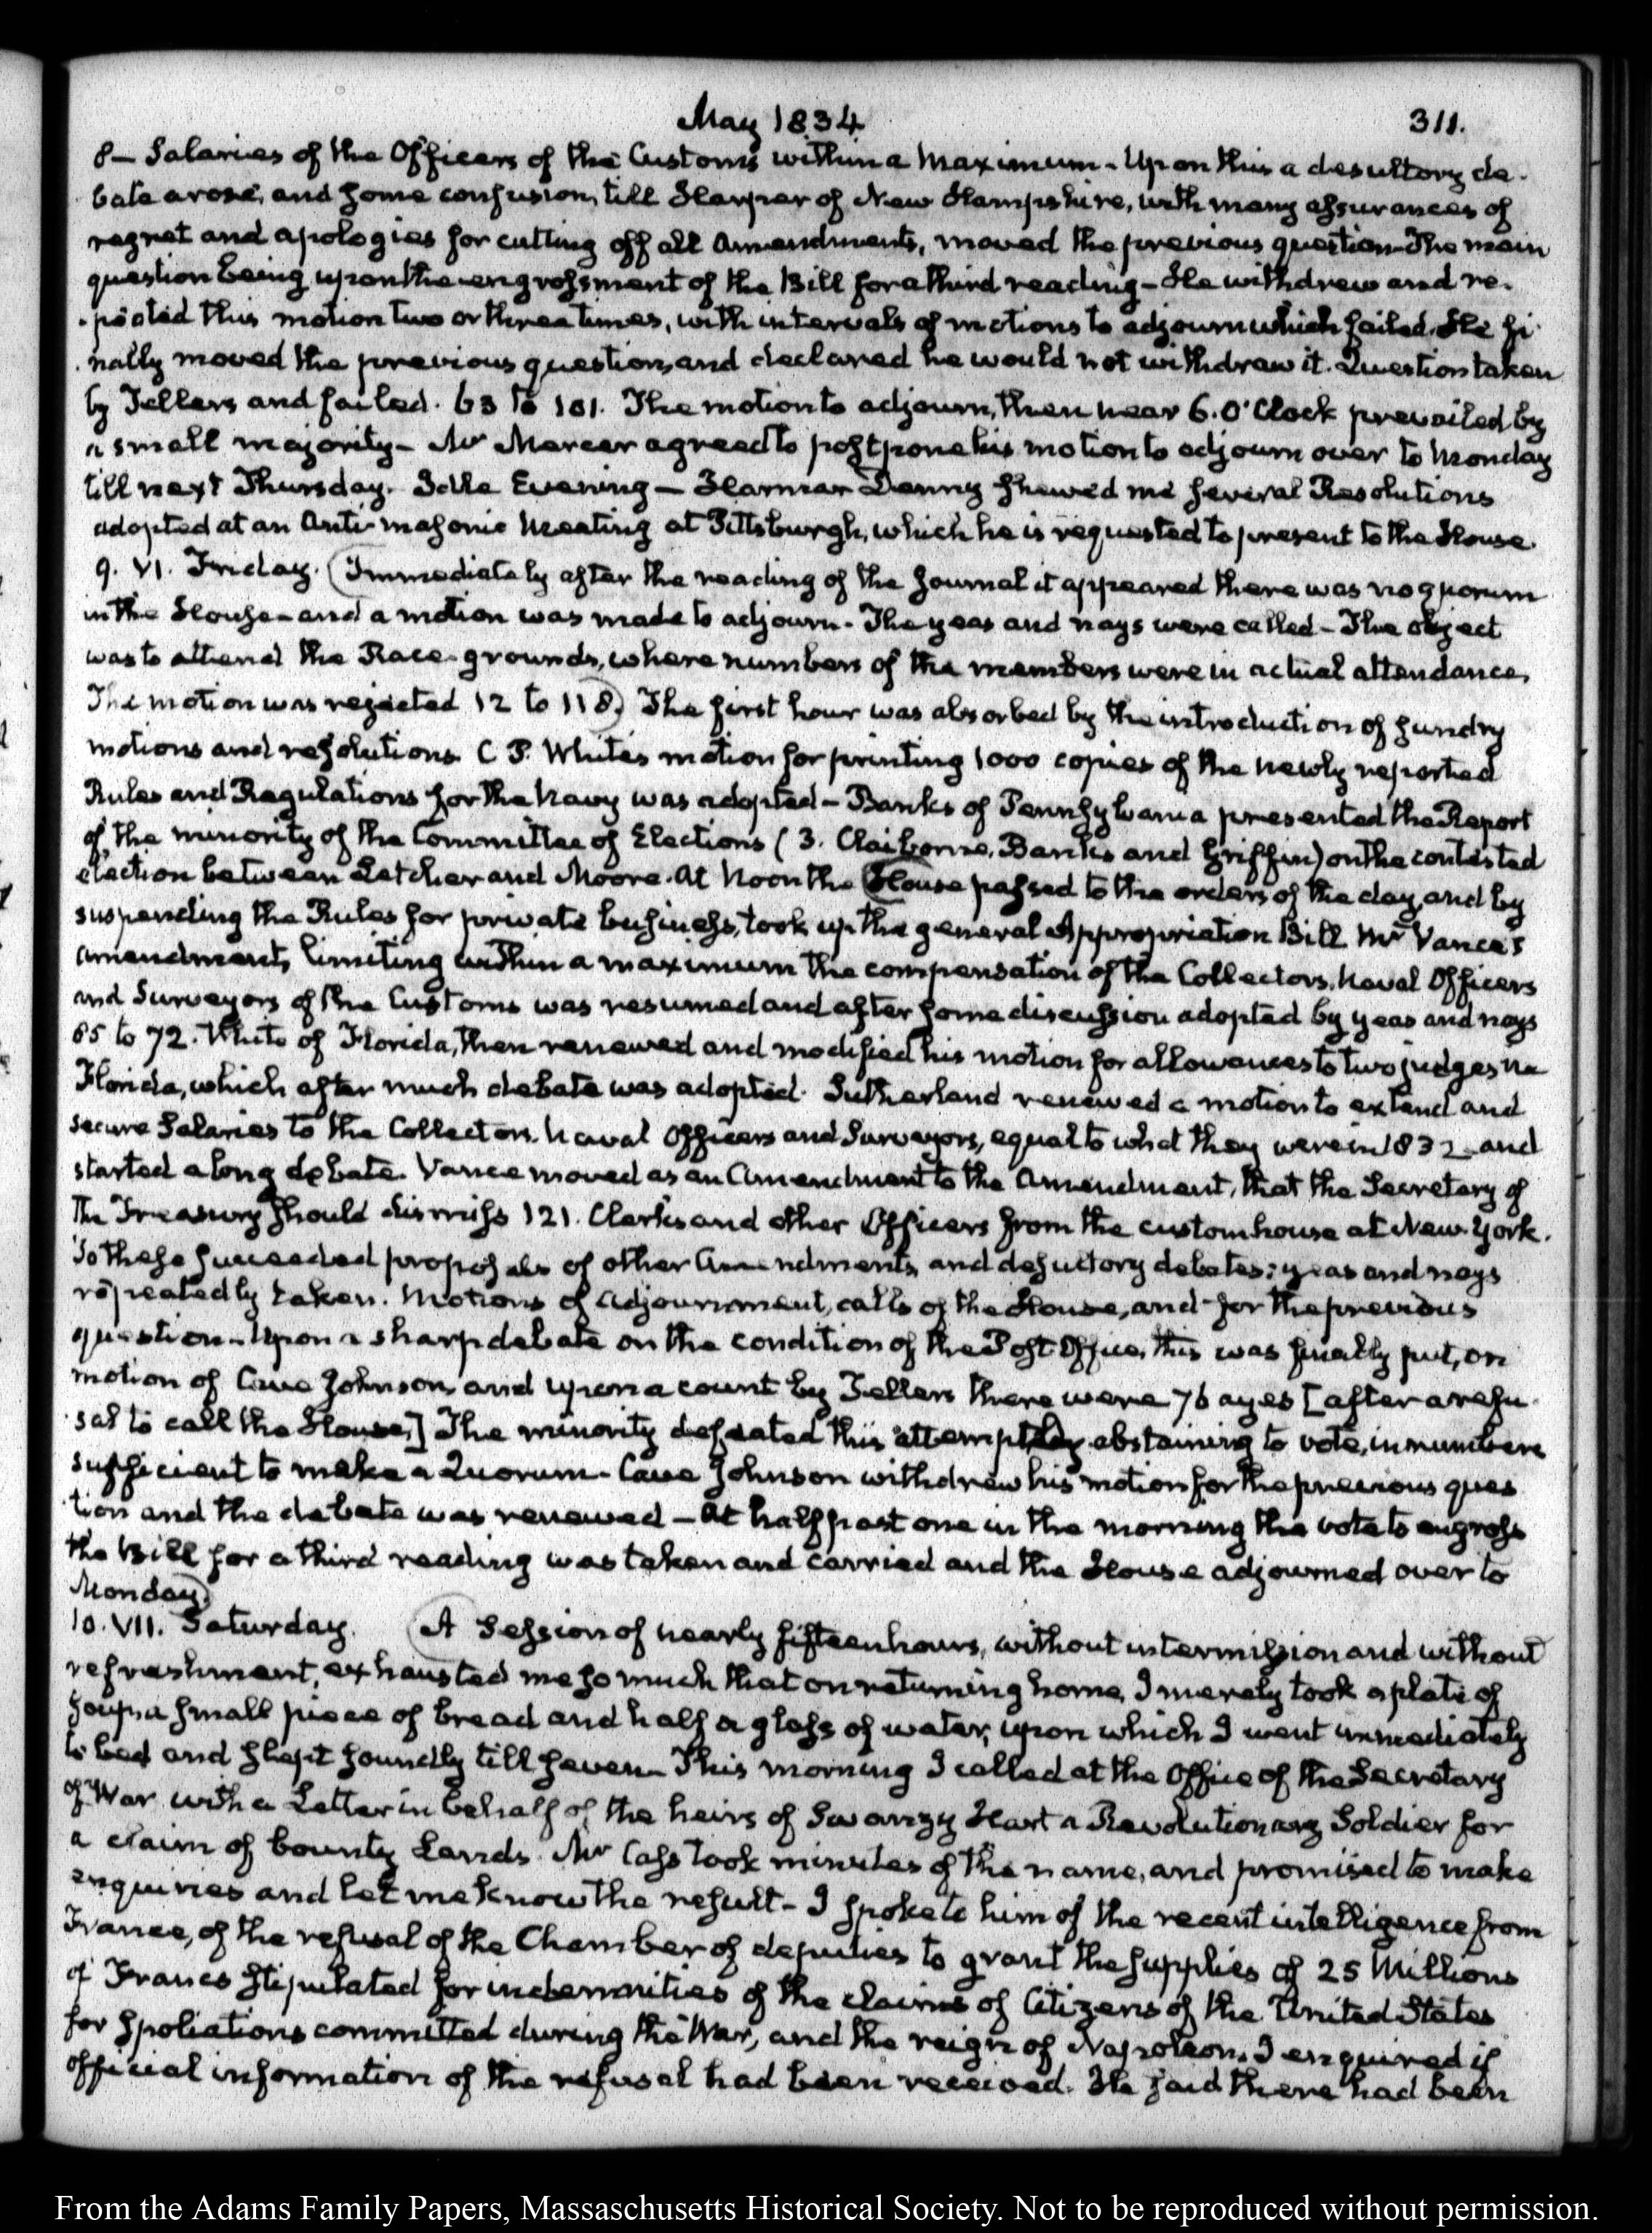 May 1834
311.
8— Salaries of the Officers of the Customs within a Maximum - Upon this a desultory de-
bate arose, and some confusion, till Harper of New Hampshire, with many assurances of
regret and apologies for cutting off all Amendments, moved the previous question—The main
question being upon the engrossment of the Bill for a third reading—He withdrew and re-
peated this motion two or three times, with intervals of motions to adjourn which failed. He fi-
nally moved the previous question, and declared he would not withdraw it. Question taken
by Tellers and failed. 63 to 101. The motion to adjourn, then near 6. O'Clock prevailed by
a small majority— Mr Mercer agreed to postpone his motion to adjourn over to Monday
till next Thursday. Idle Evening — Harmar Denny shewed me several Resolutions
adopted at an Anti-masonic Meeting at Pittsburgh, which he is requested to present to the House.
9. VI. Friday. (Immediately after the reading of the Journal it appeared there was no quorum
in the House—and a motion was made to adjourn. The yeas and nays were called—The object
was to attend the Race-grounds, where numbers of the members were in actual attendance.
The motion was rejected 12 to 118.) The first hour was absorbed by the introduction of sundry
motions and resolutions. C. P. White's motion for printing 1000 copies of the newly reported
Rules and Regulations for the Navy was adopted — Banks of Pennsylvania presented the Report
of the minority of the Committee of Elections (3. Claiborne, Banks and Griffin) on the contested
election between Letcher and Moore. At Noon the (House passed to the orders of the day, and by
suspending the Rules for private business, took up the general Appropriation Bill Mr Vance's
amendment, limiting within a maximum the compensation of the Collectors, Naval Officers
and Surveyors of the Customs was resumed and after some discussion adopted by yeas and nays
85 to 72. White of Florida, then renewed and modified his motion for allowances to two judges in
Florida, which after much debate was adopted. Sutherland renewed a motion to extend and
secure Salaries to the Collectors, Naval Officers and Surveyors, equal to what they were in 1832 and
started a long debate. Vance moved as an Amendment to the Amendment, that the Secretary of
the Treasury should dismiss 121. Clerks and other Officers from the custom house at New-York.
To these succeeded proposals of other Amendments, and desultory debates; yeas and nays
repeatedly taken. Motions of adjournment, calls of the House, and for the previous
question—Upon a sharp debate on the condition of the Post Office, this was finally put, on
motion of Cave Johnson, and upon a count by Tellers there were 76 ayes [after a refu-
sal to call the House,] The minority defeated this attempt by abstaining to vote, in numbers
sufficient to make a Quorum. Cave Johnson withdrew his motion for the previous ques
tion and the debate was renewed — At half past one in the morning the vote to engross
the Bill for a third reading was taken and carried and the House adjourned over to
Monday.)
10. VII. Saturday. (A Session of nearly fifteen hours, without intermission and without
refreshment, exhausted me so much that on returning home, I merely took a plate of
soup, a small piece of bread and half a glass of water, upon which I went immediately
to bed and slept soundly till seven— This morning I called at the Office of the Secretary
of War with a Letter in behalf of the heirs of Swanzy Hart a Revolutionary Soldier for
a claim of bounty Lands. Mr Cass took minutes of the name, and promised to make
enquiries and let me know the result— I spoke to him of the recent intelligence from
France, of the refusal of the Chamber of deputies to grant the supplies of 25 Millions
of Francs stipulated for indemnities of the claims of Citizens of the United States
for spoliations committed during the War, and the reign of Napoleon. I enquired if
official information of the refusal had been received. He said there had been
From the Adams Family Papers, Massachusetts Historical Society. Not to be reproduced without permission.